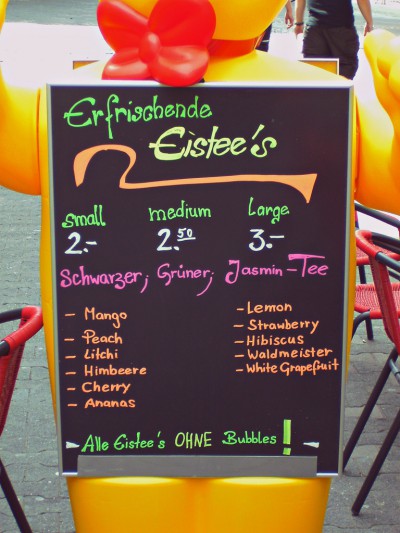 Erfrischende
Eistee's
small medium Large
2.- 2.50 3.-
Schwarzer, Grüner, Jasmin-Tee
- Mango
- Peach
- Litchi
- Himbeere
- Cherry
- Ananas
- Lemon
- Strawberry
- Hibiscus
- Waldmeister
- White Grapefruit
Alle Eistee's OHNE Bubbles!